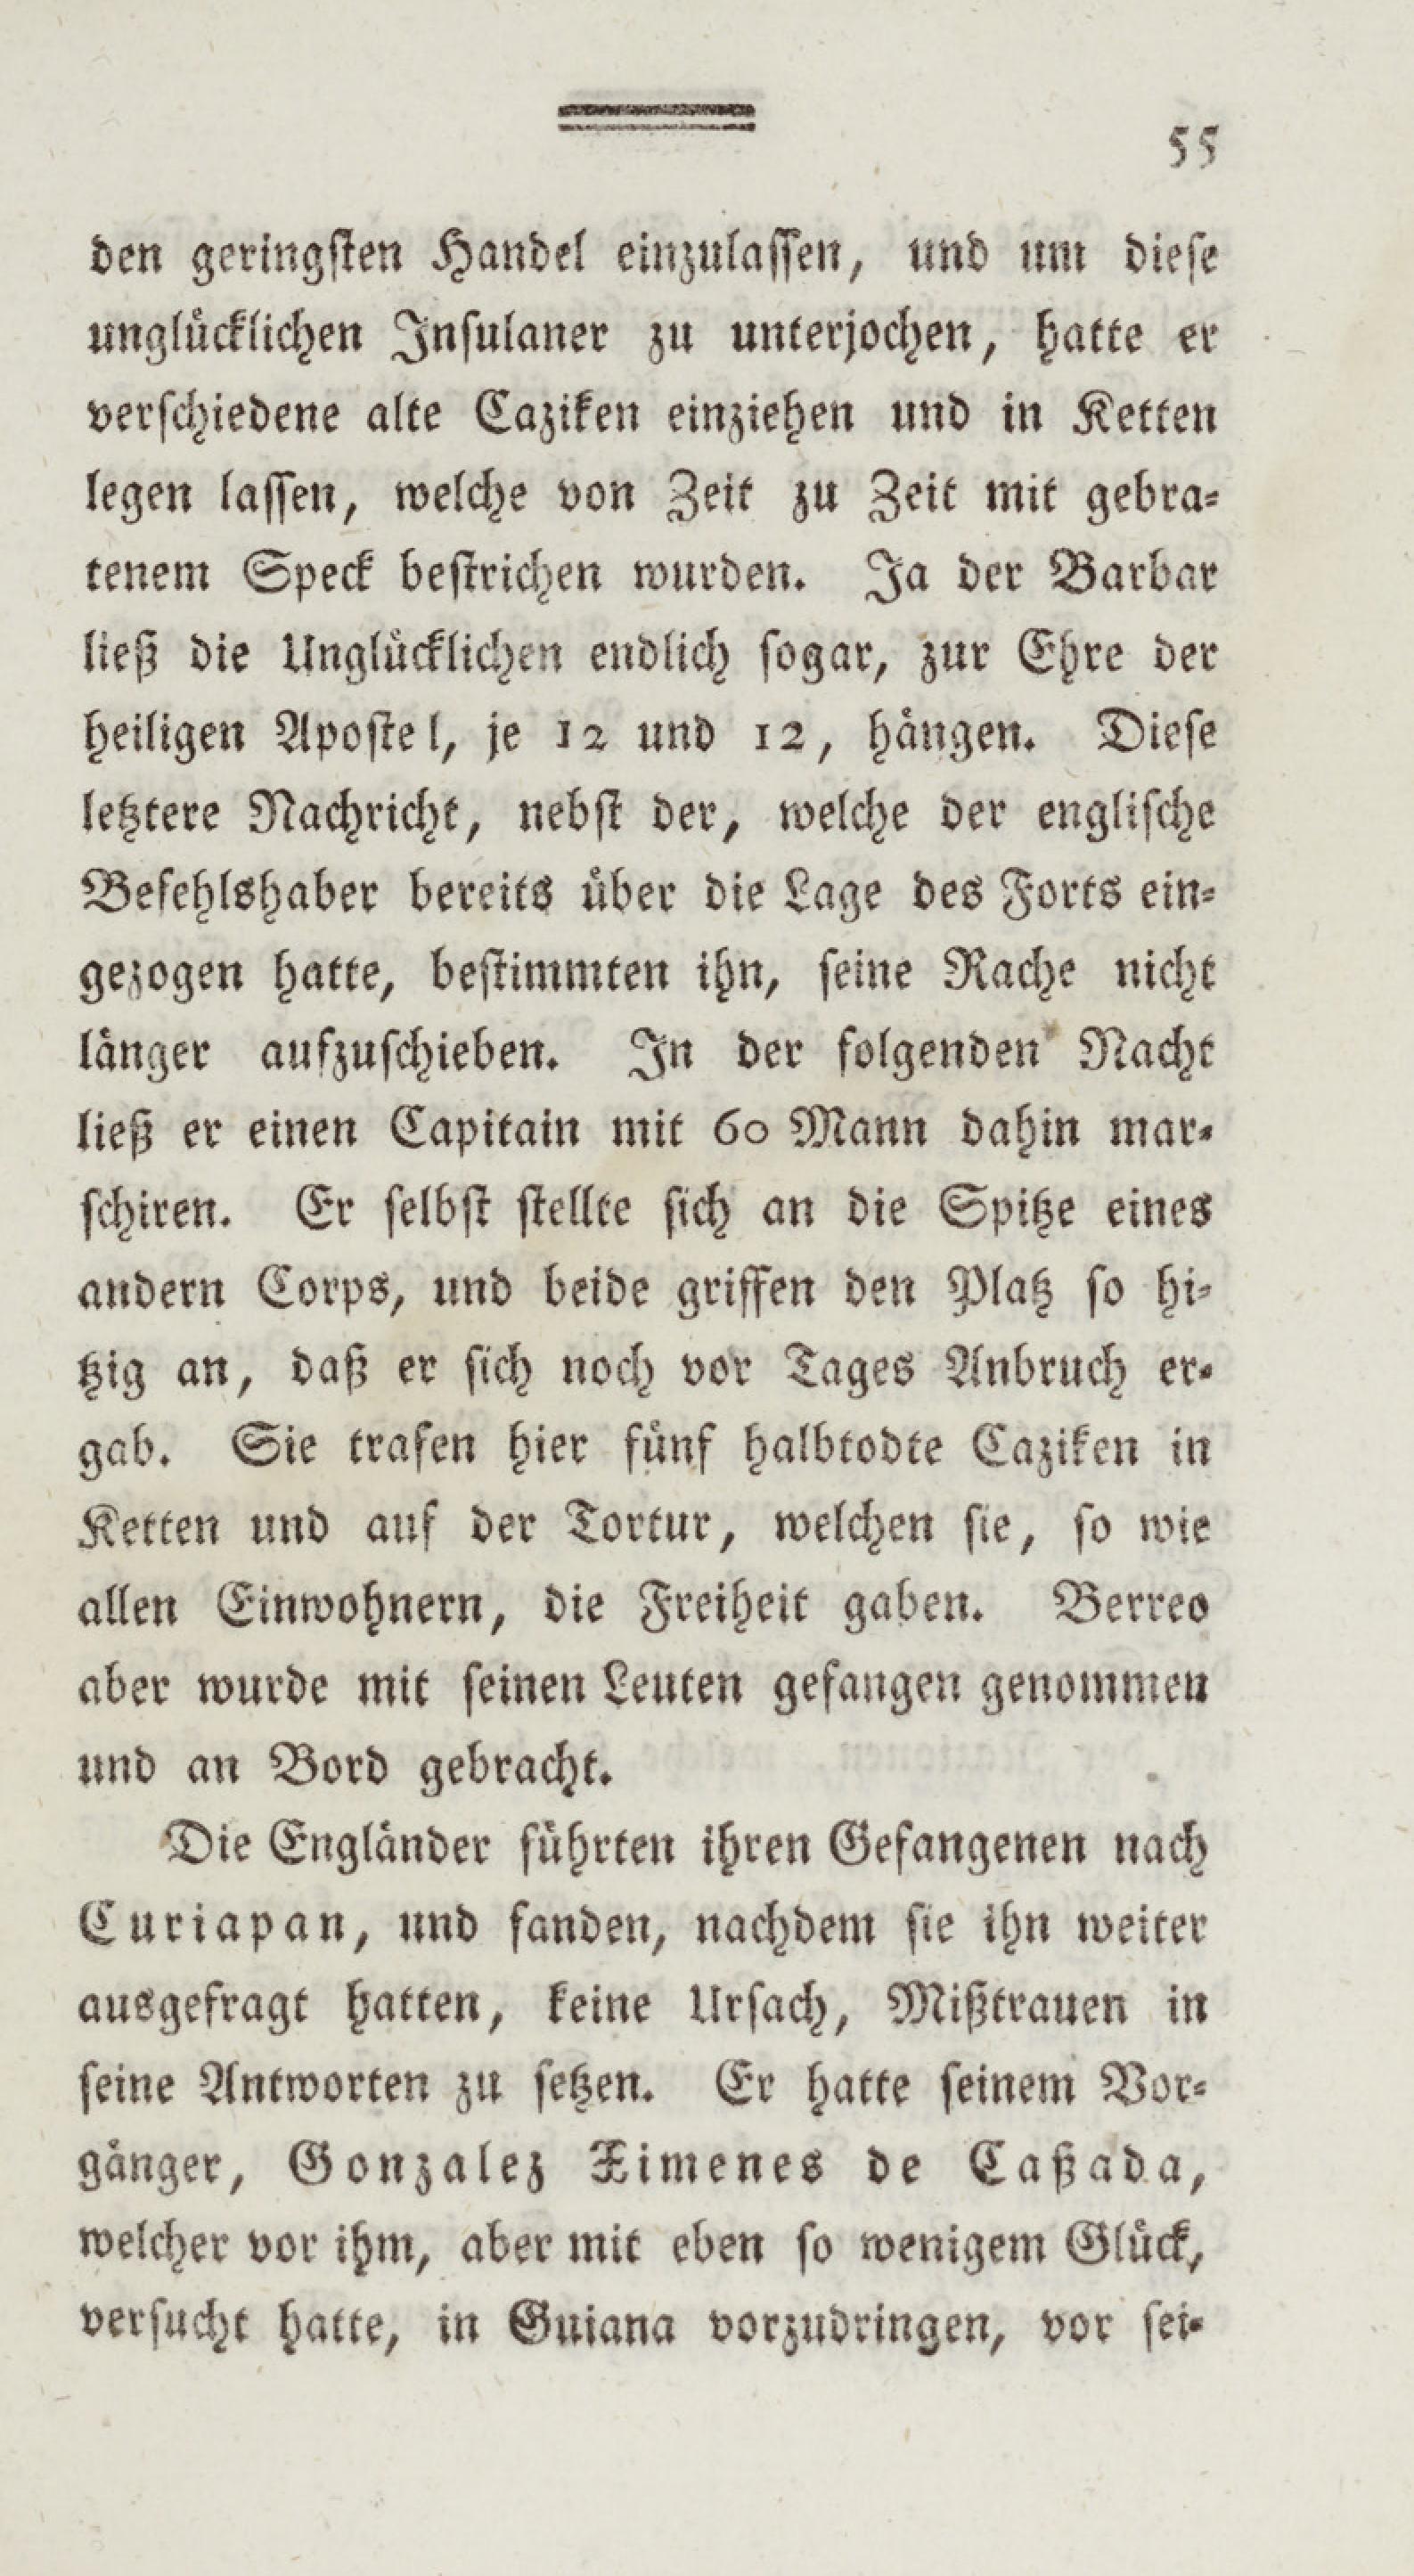 55
den geringsten Handel einzulassen, und um diese
unglücklichen Insulaner zu unterjochen, hatte er
verschiedene alte Caziken einziehen und in Ketten
legen lassen, welche von Zeit zu Zeit mit gebra-
tenem Speck bestrichen wurden. Ja der Barbar
ließ die Unglücklichen endlich sogar, zur Ehre der
heiligen Apostel, je 12 und 12, hängen. Diese
letztere Nachricht, nebst der, welche der englische
Befehlshaber bereits über die Lage des Forts ein-
gezogen hatte, bestimmten ihn, seine Rache nicht
länger aufzuschieben. In der folgenden Nacht
ließ er einen Capitain mit 60 Mann dahin mar-
schiren. Er selbst stellte sich an die Spitze eines
andern Corps, und beide griffen den Platz so hi-
tzig an, daß er sich noch vor Tages Anbruch er-
gab. Sie trafen hier fünf halbtodte Caziken in
Ketten und auf der Tortur, welchen sie, so wie
allen Einwohnern, die Freiheit gaben. Berreo
aber wurde mit seinen Leuten gefangen genommen
und an Bord gebracht.
Die Engländer führten ihren Gefangenen nach
Curiapan, und fanden, nachdem sie ihn weiter
ausgefragt hatten, keine Ursach, Mißtrauen in
seine Antworten zu setzen. Er hatte seinem Vor-
gänger, Gonzalez Ximenes de Caßada,
welcher vor ihm, aber mit eben so wenigem Glück,
versucht hatte, in Guiana vorzudringen, vor sei-